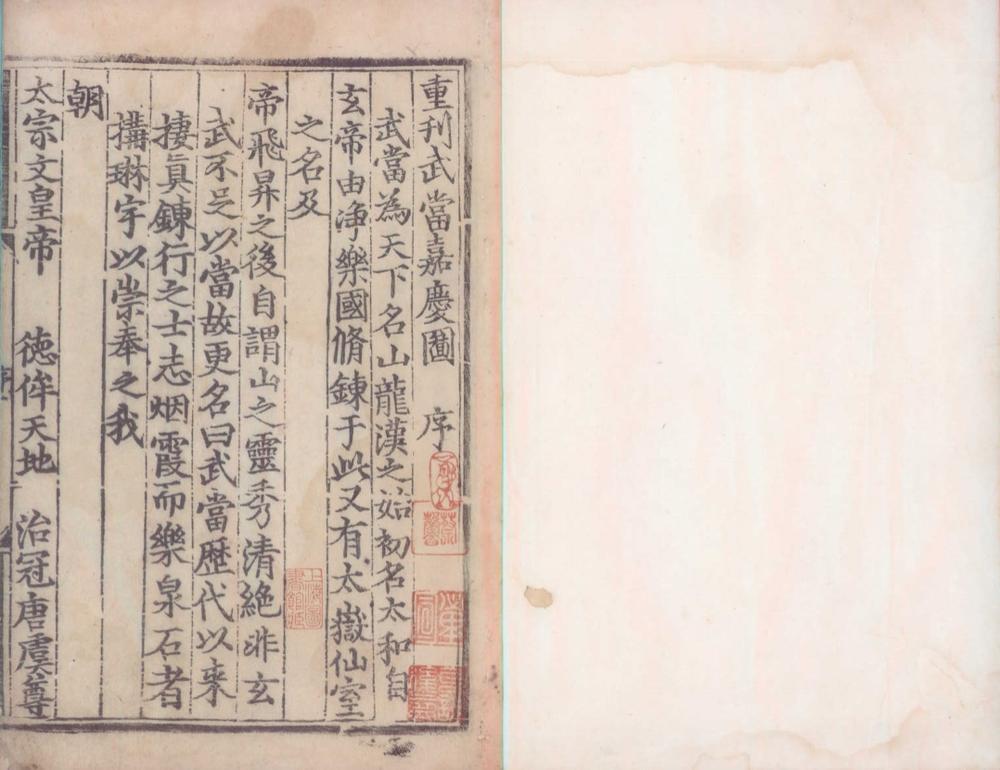 重刊武當嘉慶圖 序
武當為天下名山龍漢之始初名太和自
玄帝由淨樂國脩鍊于此又有太嶽仙室
之名及
帝飛昇之後自謂山之靈秀清絶非玄
武不足以當故更名曰武當歷代以來
捿眞鍊行之士志烟霞而樂泉石者
搆琳宇以崇奉之我
朝
太宗文皇帝 德侔天地 治冠唐虞尊
上海圖
書館藏